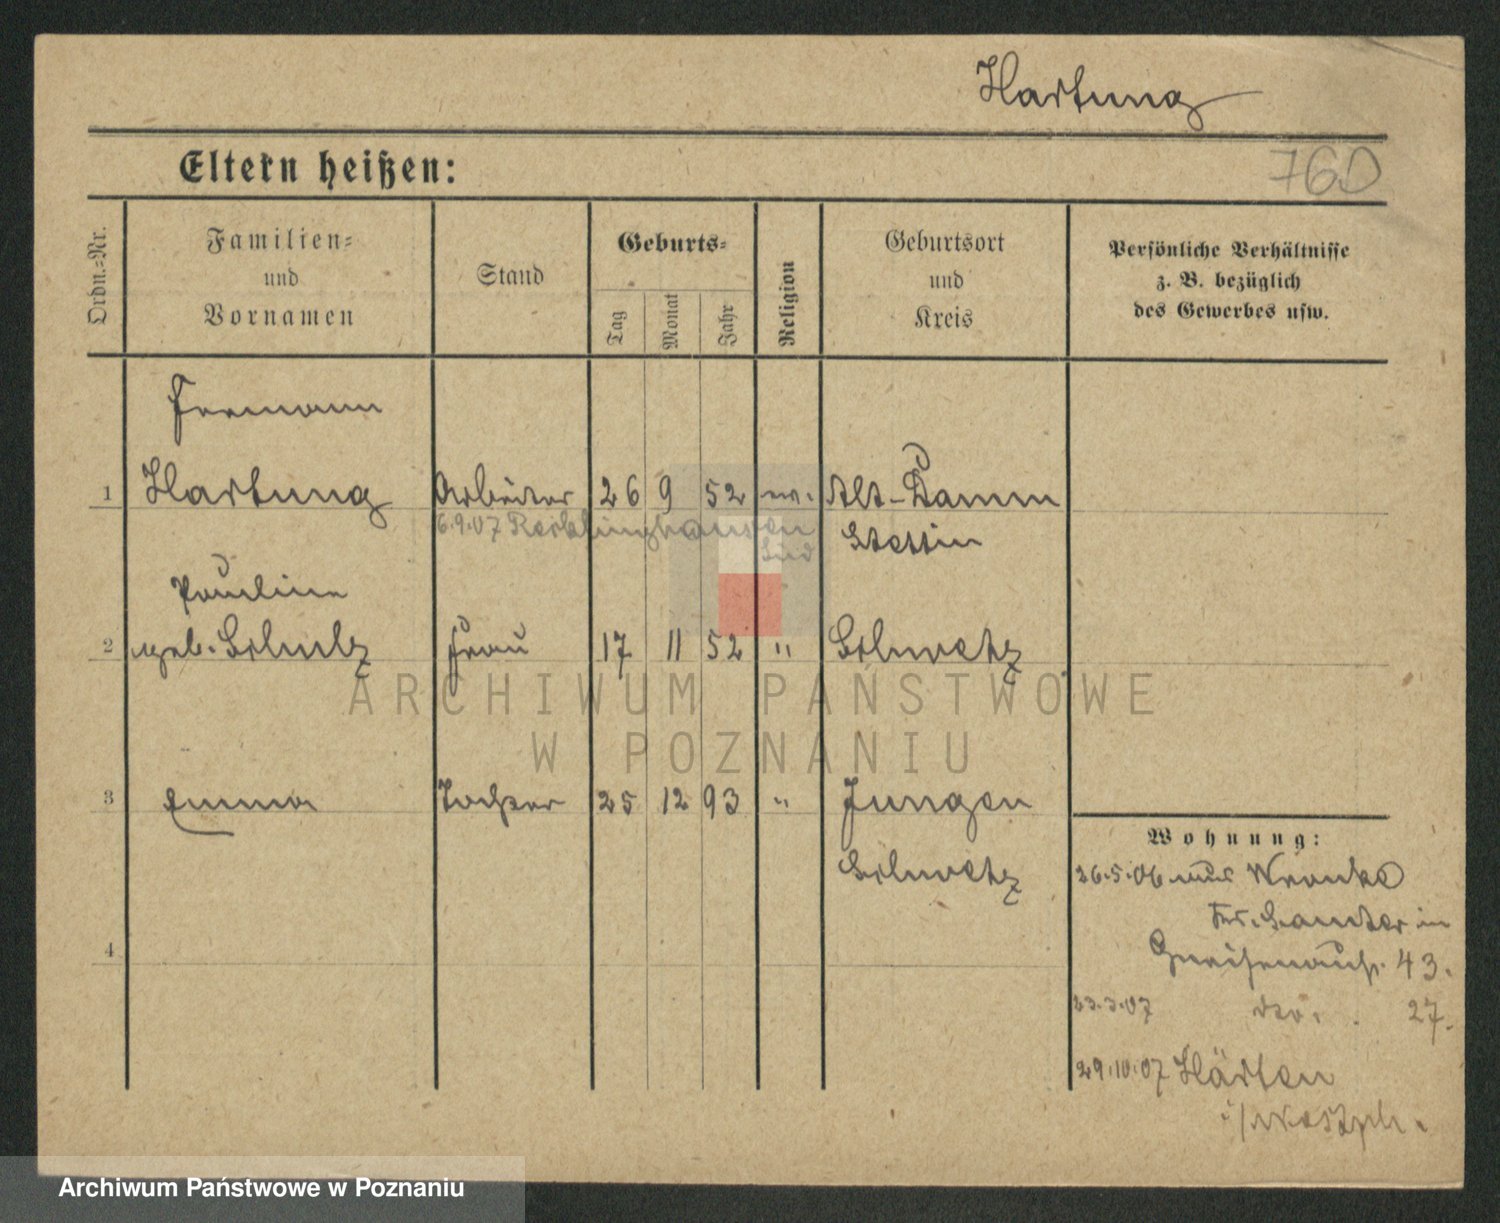 Hartung
Eltern heißen:
760
Ordn.-Nr.
Familien-
und
Vornamen
Stand
Geburts-
Tag
Monat
Jahr
Religion
Geburtsort
und
Kreis
Persönliche Verhältnisse
z. B. bezüglich
des Gewerbes usw.
Hermann
1 Hartung Arbeiter 26 9 52 ev. Alt-Damm
6.9.07 Recklinghausen Stettin
Süd
Pauline
2 geb. Schulz Frau 17 11 52 " Schwetz
ARCHIWUM PAŃSTWOWE
W POZNANIU
3 Emma Tochter 25 12 93 " Jungen
Schwetz
Wohnung:
26.5.06 aus Wronke
Kr. Samter in
Gneisenaustr. 43.
4
23.3.07 dto. 27.
29.10.07 Härten
i/Westph.
Archiwum Państwowe w Poznaniu